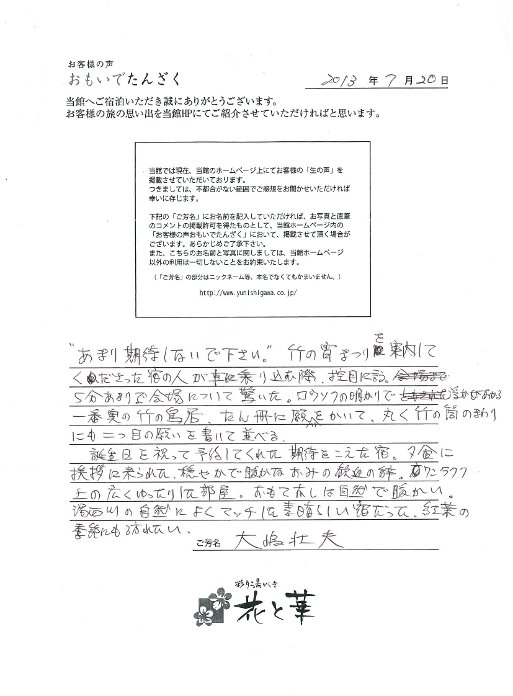 お客様の声
おもいでたんざく
2013 年 7 月 20 日
当館へご宿泊いただき誠にありがとうございます。
お客様の旅の思い出を当館HPにてご紹介させていただければと思います。
当館では現在、当館のホームページ上にてお客様の「生の声」を
掲載させていただいております。
つきましては、不都合がない範囲でご感想をお聞かせいただければ
幸いに存じます。
下記の「ご芳名」にお名前を記入していただければ、お写真と直筆
のコメントの掲載許可を得たものとして、当館ホームページ内の
「お客様の声おもいでたんざく」において、掲載させて頂く場合が
ございます。あらかじめご了承下さい。
また、こちらのお名前と写真に関しましては、当館ホームページ
以外の利用は一切しないことをお約束いたします。
（「ご芳名」の部分はニックネーム等、本名でなくてもかまいません。）
http://www.yunishigawa.co.jp/
“あまり期待しないで下さい。” 竹の宵まつりを案内して
くださった宿の人が車に乗り込む際、控目に
5分あまりで会場について驚いた。ロウソクの明かりで
一番奥の竹の鳥居、たん冊に願をかいて、丸く竹の筒のまわり
にも二つ目の願いを書いて並べる。
誕生日を祝って予約してくれた期待をこえた宿。夕食に
挨拶に来られた、穏やかで暖かなおかみの歓迎の
上の広くゆったりした部屋。おもてなしは自然で暖かい。
湯西川の自然によくマッチした素晴らしい宿だった、紅葉の
季節にも訪れたい。
ご芳名 大嶋壮夫
彩り湯かしき
花と華